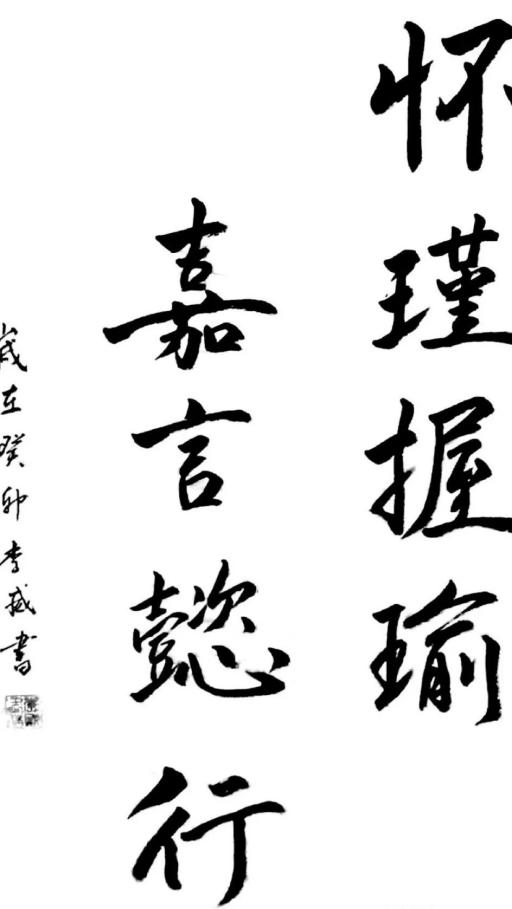 怀瑾握瑜
嘉言懿行
岁在癸卯李威书